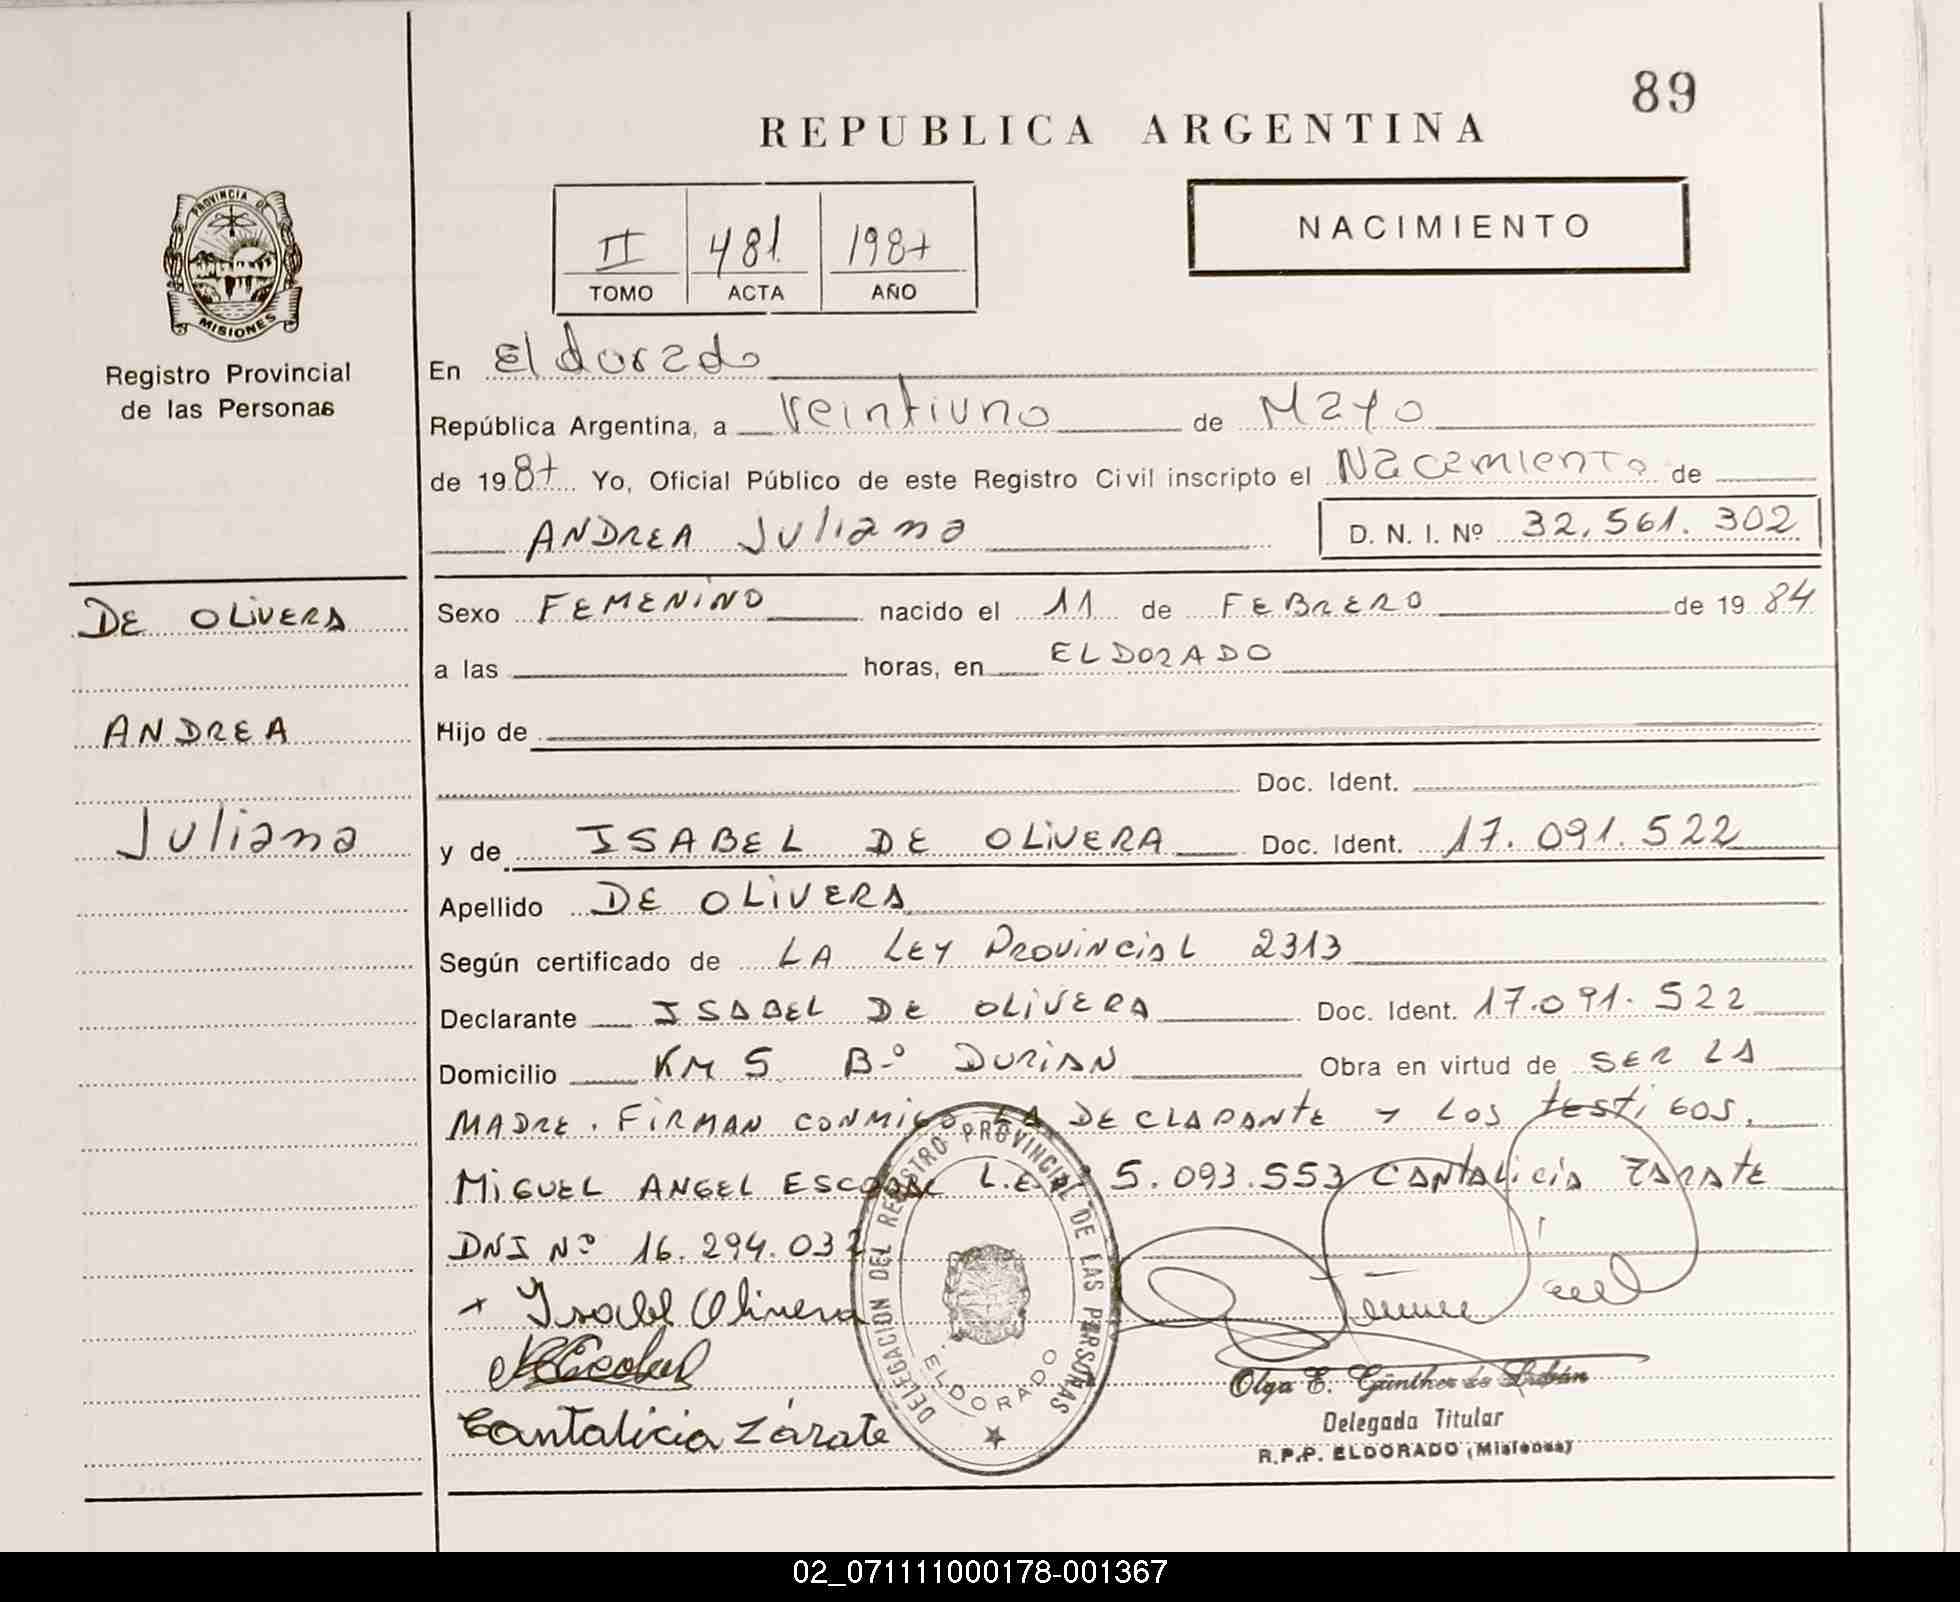 89
REPUBLICA ARGENTINA
PROVINCIA DE
MISIONES
Registro Provincial
de las Personas
II 481 1987
TOMO ACTA AÑO
NACIMIENTO
En Eldorado
República Argentina, a Veintiuno de Mayo
de 1987 Yo, Oficial Público de este Registro Civil inscripto el Nacemiento de
ANDREA Juliana D. N. I. Nº 32.561.302
DE OLIVERA
ANDREA
Juliana
Sexo FEMENINO nacido el 11 de FEBRERO de 1984
a las horas, en ELDORADO
Hijo de
Doc. Ident.
y de ISABEL DE OLIVERA Doc. Ident. 17.091.522
Apellido DE OLIVERA
Según certificado de LA LEY PROVINCIAL 2313
Declarante ISABEL DE OLIVERA Doc. Ident. 17.091.522
Domicilio KM 5 Bº DURIAN Obra en virtud de SER LA
MADRE. FIRMAN CONMIGO LA DECLARANTE Y LOS testigos.
MIGUEL ANGEL ESCOBAR L.E. 5.093.553 CANTALICIA ZARATE
DNI Nº 16.294.032
+ Isabel Olivera
Cantalicia Zárate
DELEGACION DEL REGISTRO PROVINCIAL DE LAS PERSONAS
ELDORADO
Olga E. Günther de
Delegada Titular
R.P.P. ELDORADO (Misiones)
02_071111000178-001367